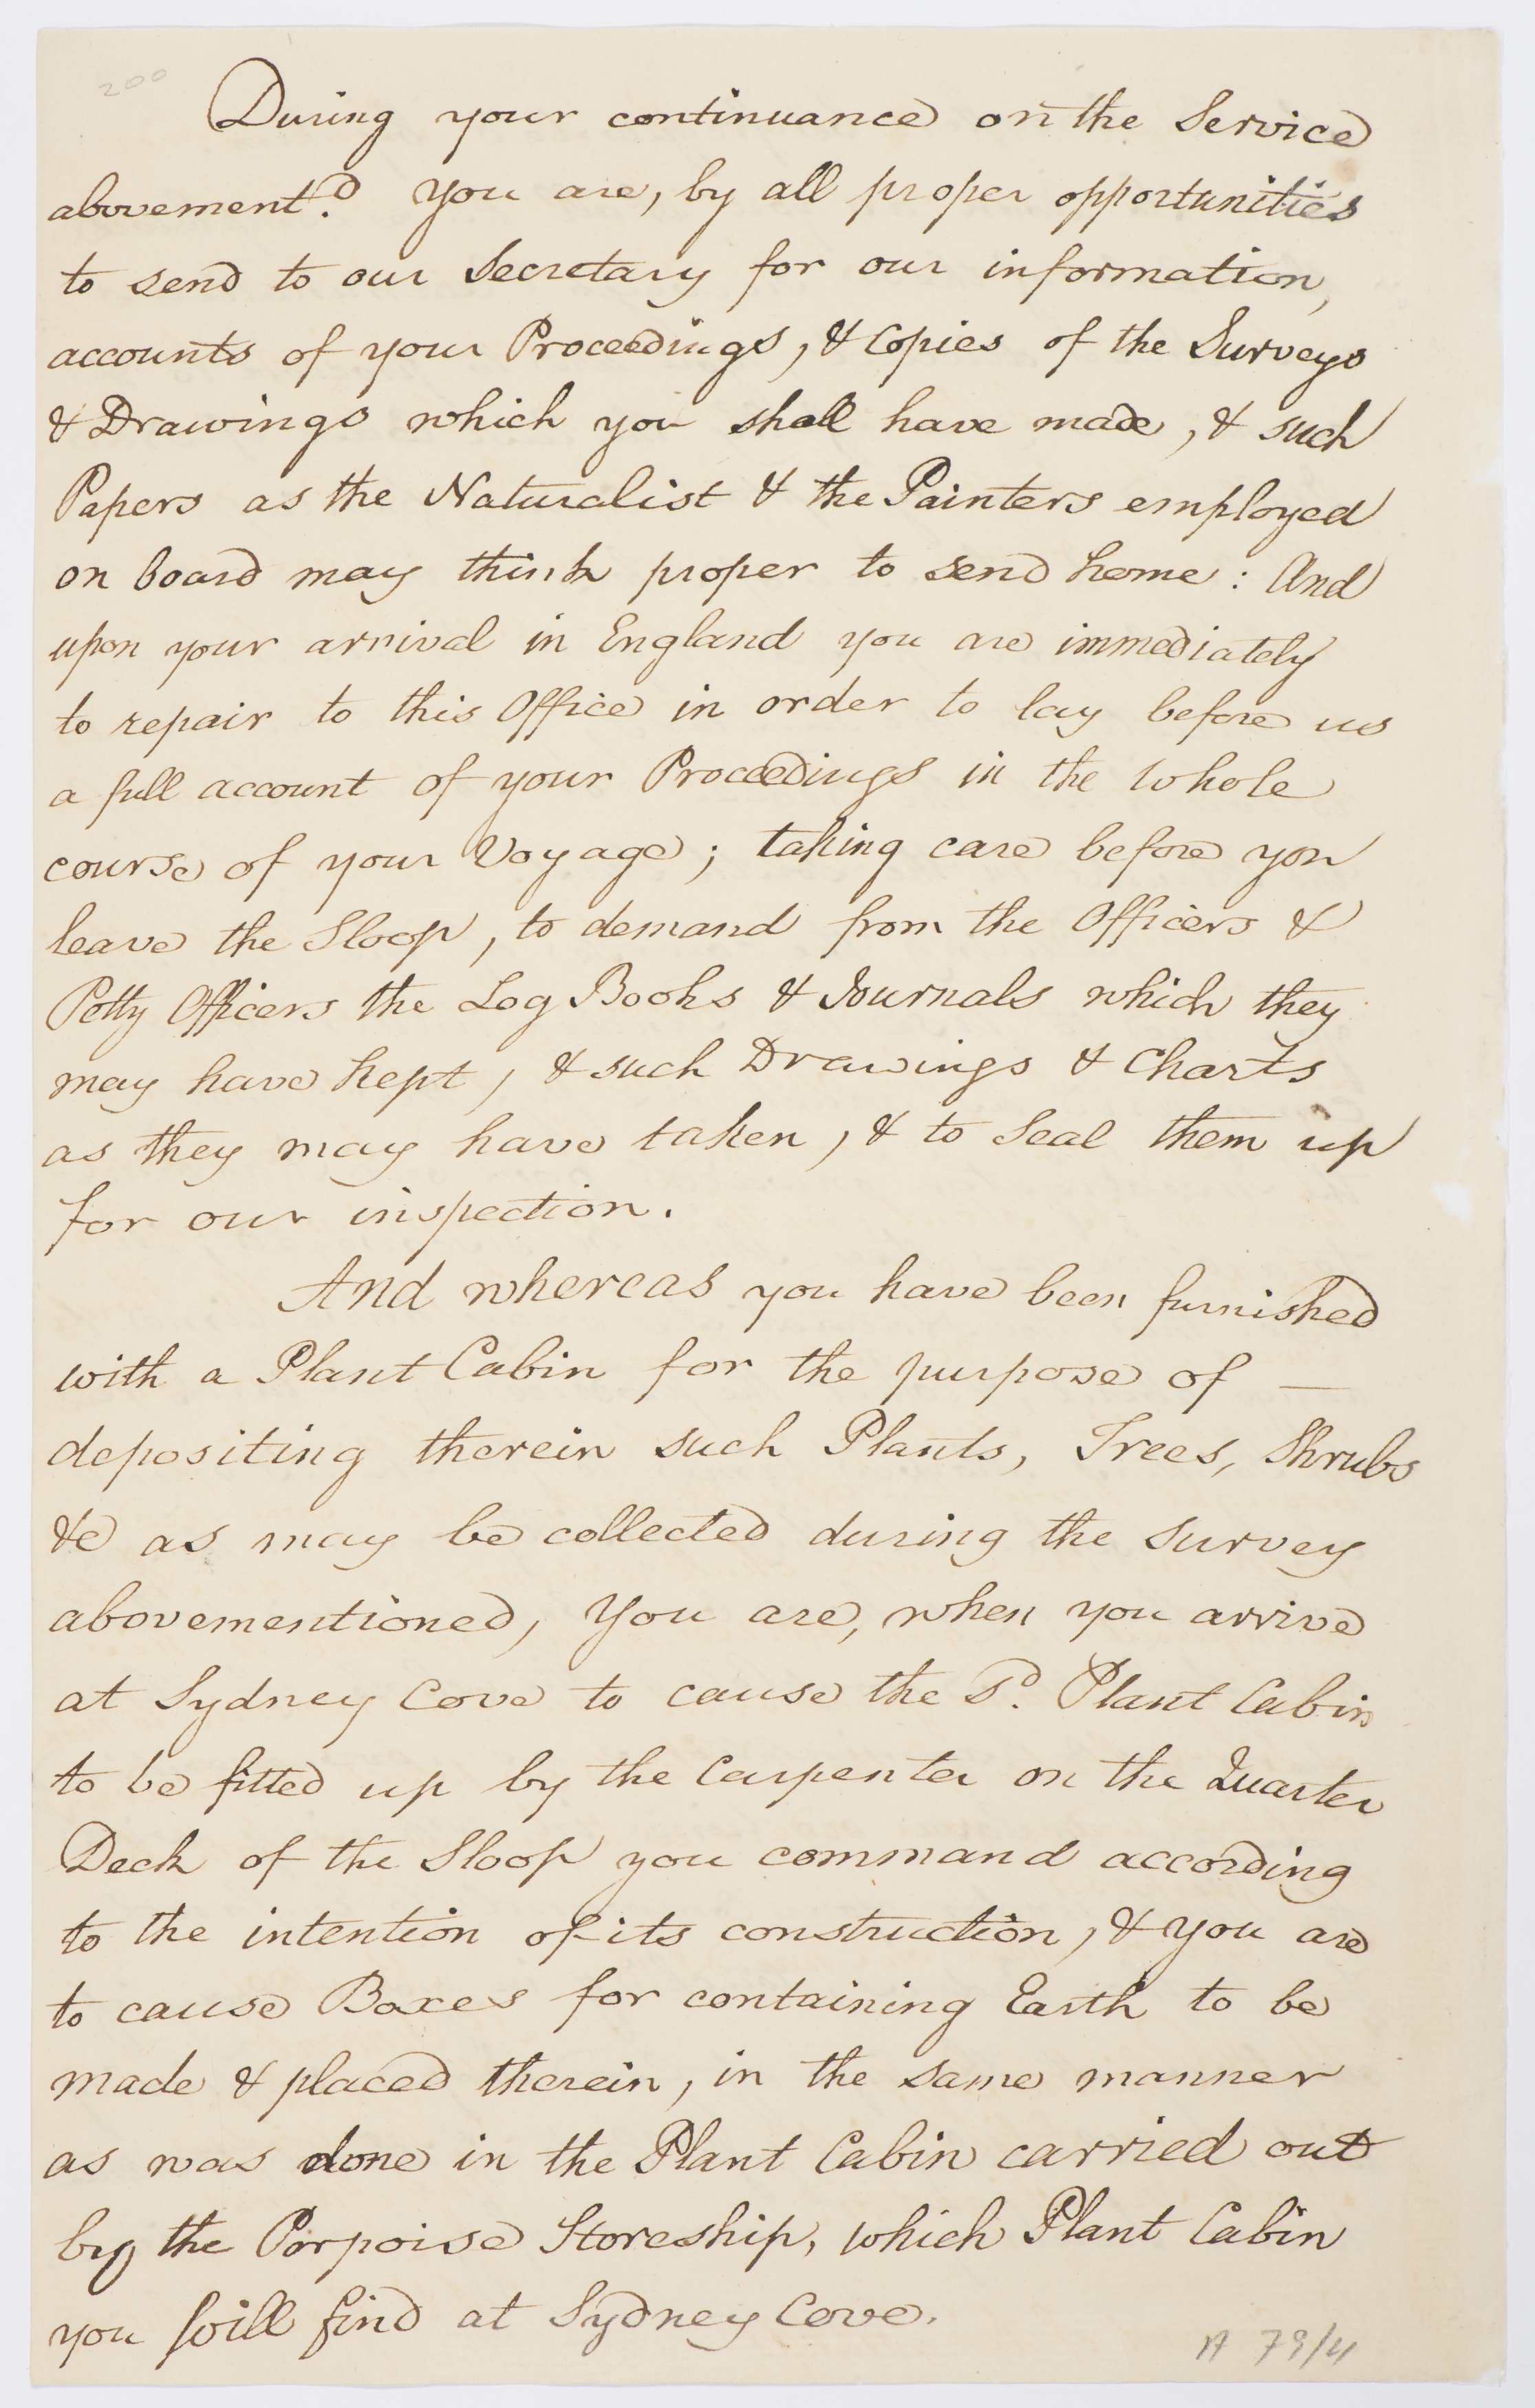 200
During your continuance on the Service
abovement.d You are, by all proper opportunities
to send to our Secretary for our information,
accounts of your Proceedings, & Copies of the Surveys
& Drawings which you shall have made, & such
Papers as the Naturalist & the Painters employed
on board may think proper to send home: And
upon your arrival in England you are immediately
to repair to this Office in order to lay before us
a full account of your Proceedings in the whole
course of your Voyage; taking care before you
leave the Sloop, to demand from the Officers &
Petty Officers the Log Books & Journals which they
may have kept, & such Drawings & Charts
as they may have taken, & to Seal them up
for our inspection.
And whereas you have been furnished
with a Plant Cabin for the purpose of —
depositing therein such Plants, Trees, Shrubs
&c as may be collected during the Survey
abovementioned, You are, when you arrive
at Sydney Cove to cause the Sd. Plant Cabin
to be fitted up by the Carpenter on the Quarter
Deck of the Sloop you command according
to the intention of its construction, & you are
to cause Boxes for containing Earth to be
made & placed therein, in the same manner
as was done in the Plant Cabin carried out
by the Porpoise Storeship, which Plant Cabin
you will find at Sydney Cove.
A 79/4